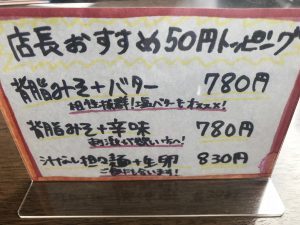 店長おすすめ50円トッピング
背脂みそ+バター 780円
相性抜群!塩バターもオススメ!
背脂みそ+辛味 780円
刺激が欲しい方へ!
汁なし担々麺+生卵 830円
ご飯にも合います!